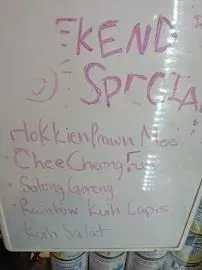 WEEKEND
SPECIAL
Hokkien Prawn Mee
Chee Cheong Fun
Sotong Goreng
Rainbow Kuih Lapis
Kuih Salat